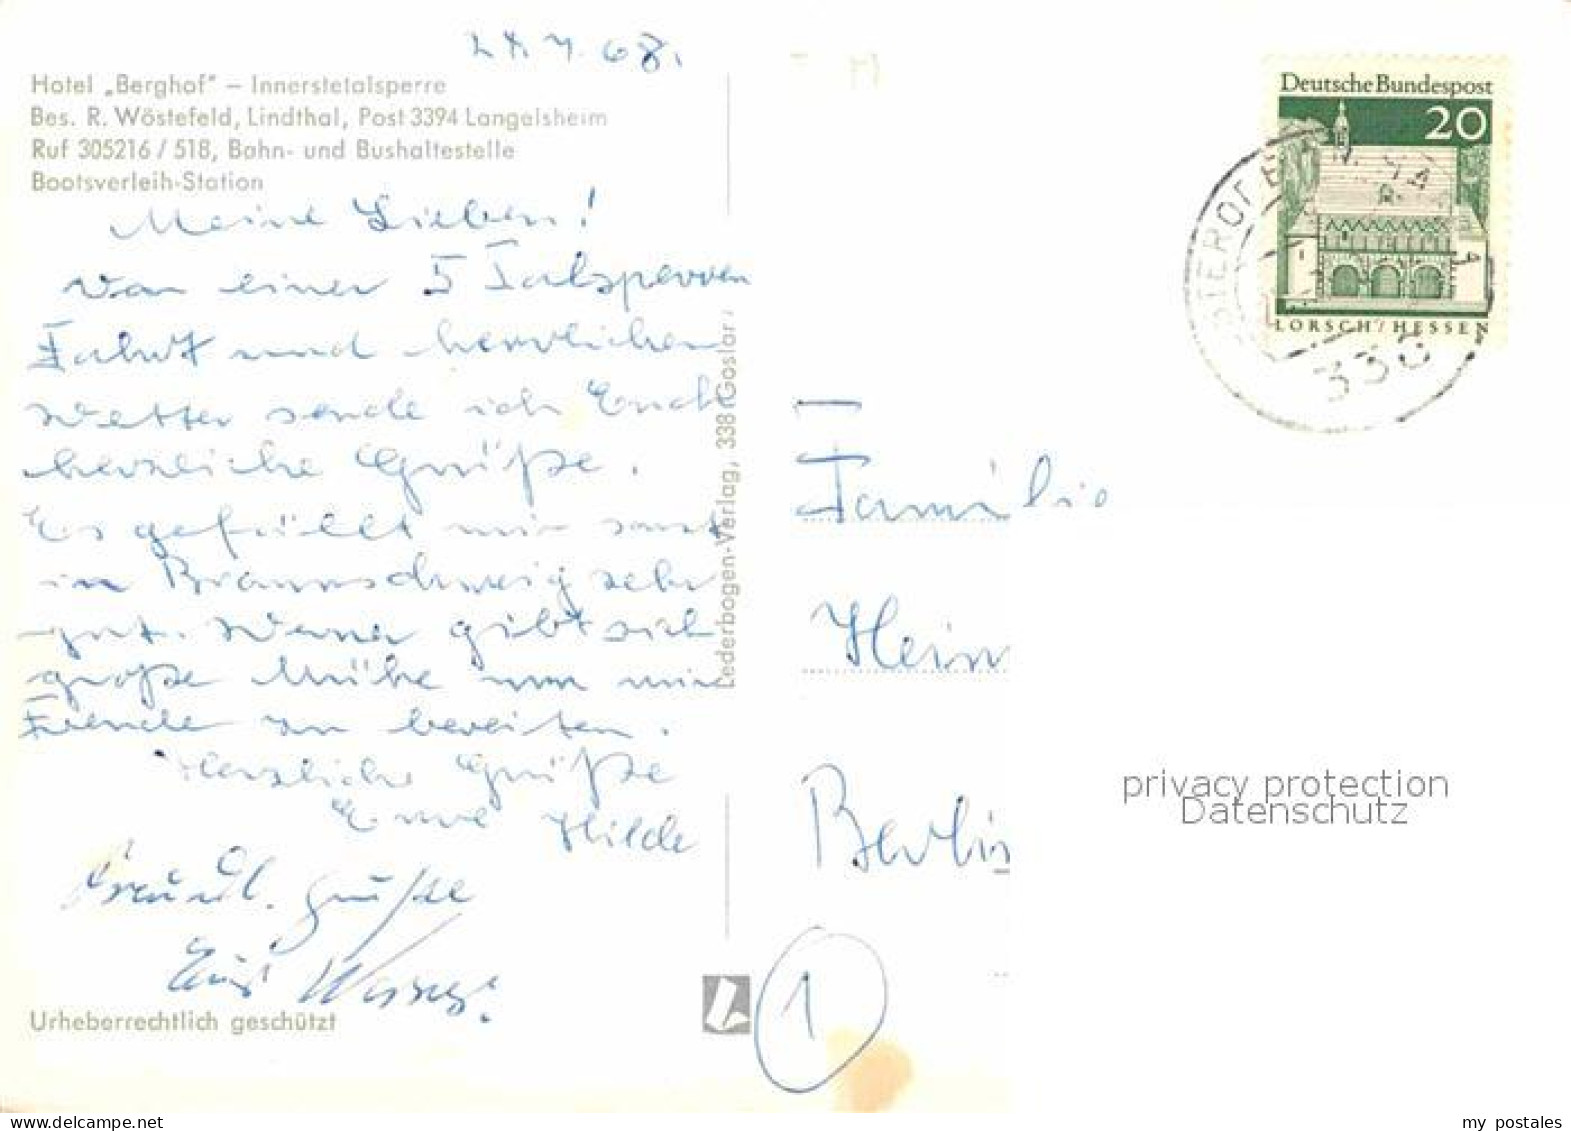 Hotel „Berghof“ – Innerstetalsperre
Bes. R. Wöstefeld, Lindthal, Post 3394 Langelsheim
Ruf 305216 / 518, Bahn- und Bushaltestelle
Bootsverleih-Station
Meine Lieben!
Von einer 5 Talsperren
Fahrt und herrlichen
Wetter sende ich Euch
herzliche Grüße.
Es gefällt mir sonst
in Braunschweig sehr
gut. Werner gibt sich
große Mühe um mir
Freude zu bereiten.
Herzliche Grüße
Eure Hilde
Grüße
Urheberrechtlich geschützt
Lederbogen-Verlag, 338 Goslar
Deutsche Bundespost
20
LORSCH / HESSEN
330
Familie
Hein
Berlin
1
privacy protection
Datenschutz
my_postales